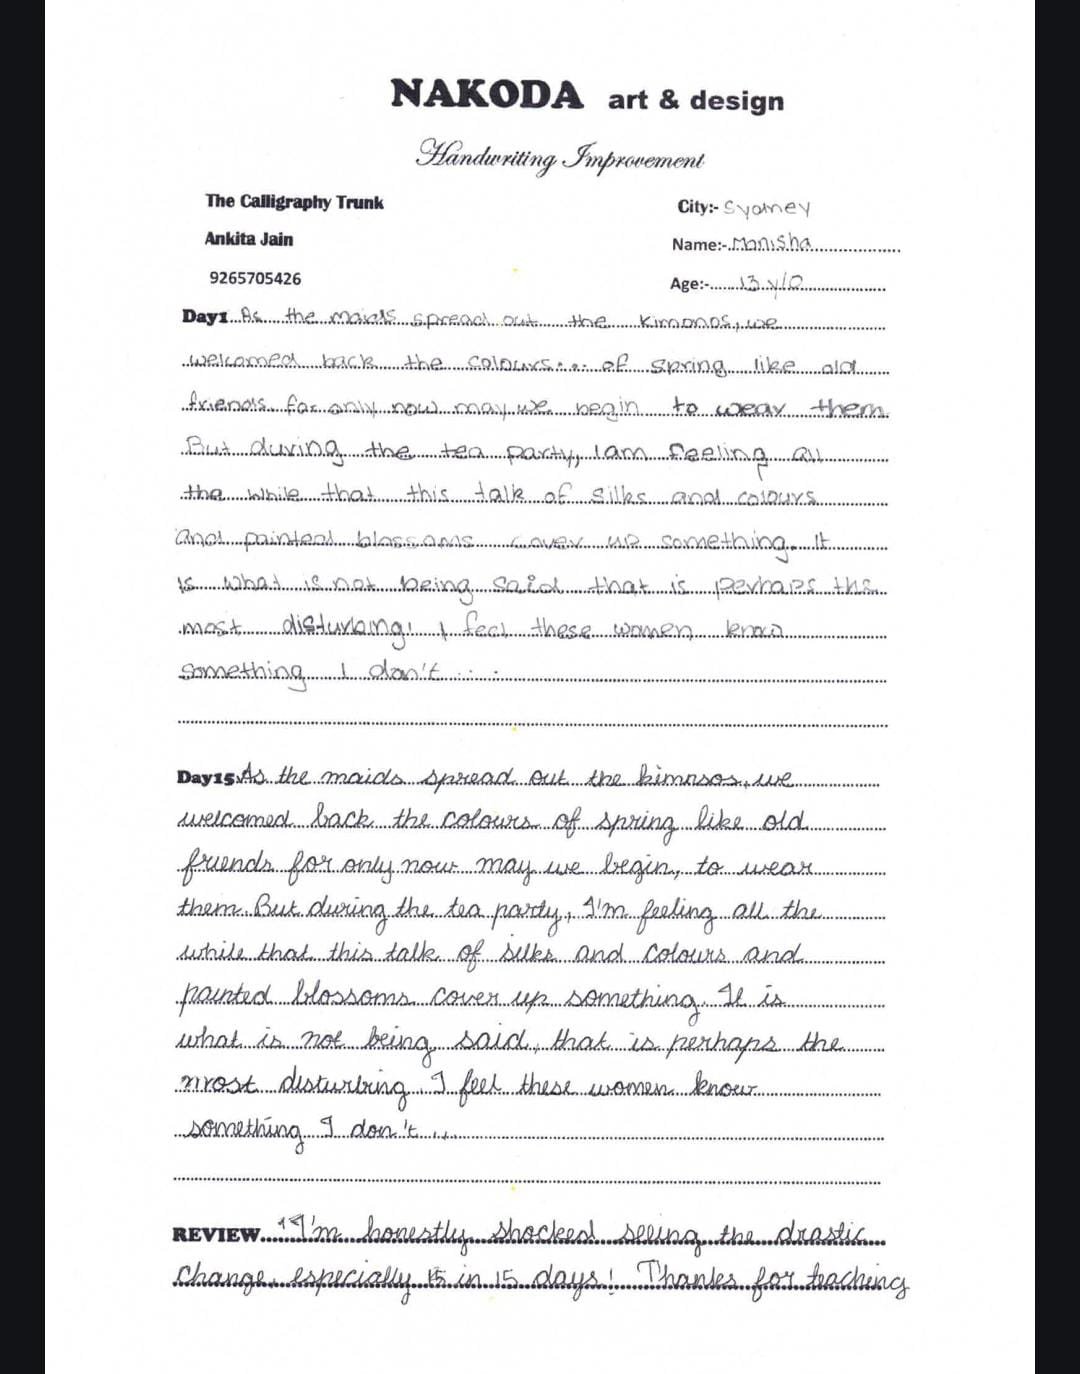 NAKODA art & design
Handwriting Improvement
The Calligraphy Trunk
City:- Sydney
Ankita Jain
Name:- Manisha
9265705426
Age:- 13 y/o
Day1 As the maids spread out the kimonos, we
welcomed back the colours... of spring like old
friends for only now may we begin to wear them
But during the tea party, I am feeling all
the while that this talk of silks and colours
and painted blossoms cover up something. It
is what is not being said that is perhaps the
most disturbing! I feel these women know
something I don't .....
Day15 As the maids spread out the kimnsos, we
welcomed back the colours of spring like old
friends for only now may we begin, to wear
them. But during the tea party, I'm feeling all the
while that this talk of silks and colours and
painted blossoms cover up something. It is
what is not being said, that is perhaps the
most disturbing. I feel these women know
something I don't ...
REVIEW "I'm honestly shocked seeing the drastic
change, especially 15 in 15 days! Thanks for teaching